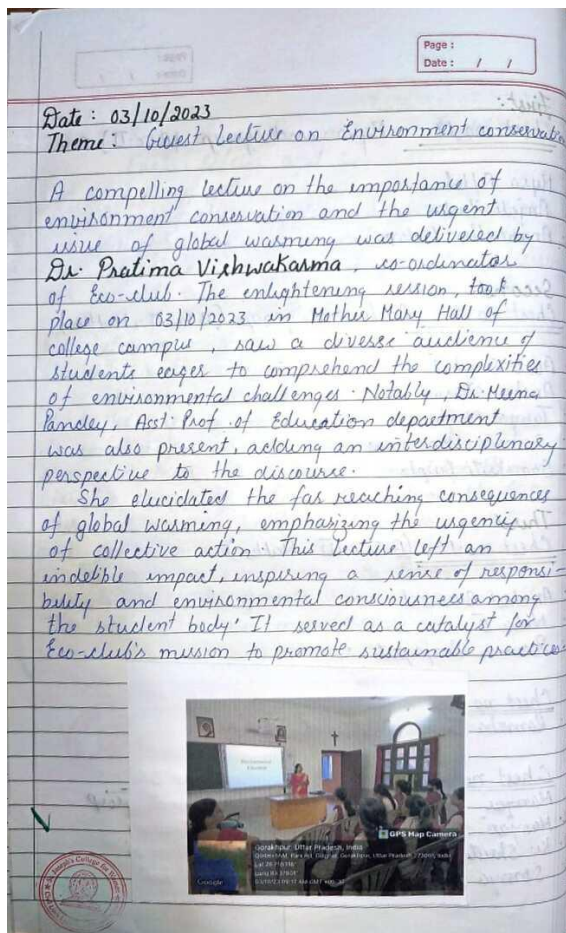 Page :
Date : / /
Date : 03/10/2023
Theme : Guest Lecture on Environment conservatio
A compelling lecture on the importance of
environment conservation and the urgent
issue of global warming was delivered by
Dr. Pratima Vishwakarma, co-ordinator
of Eco-club. The enlightening session, took
place on 03/10/2023 in Mother Mary Hall of
college campus, saw a diverse audience of
students eager to comprehend the complexities
of environmental challenges. Notably, Dr. Meena
Pandey, Asst. Prof. of Education department
was also present, adding an interdisciplinary
perspective to the discourse.
She elucidated the far reaching consequences
of global warming, emphasizing the urgency
of collective action. This lecture left an
indelible impact, inspiring a sense of responsi-
bility and environmental consciousness among
the student body. It served as a catalyst for
Eco-club's mission to promote sustainable practices
GPS Map Camera
Gorakhpur, Uttar Pradesh, India
Gorakhpur, Uttar Pradesh 273009, India
Google
Joseph's College for Women